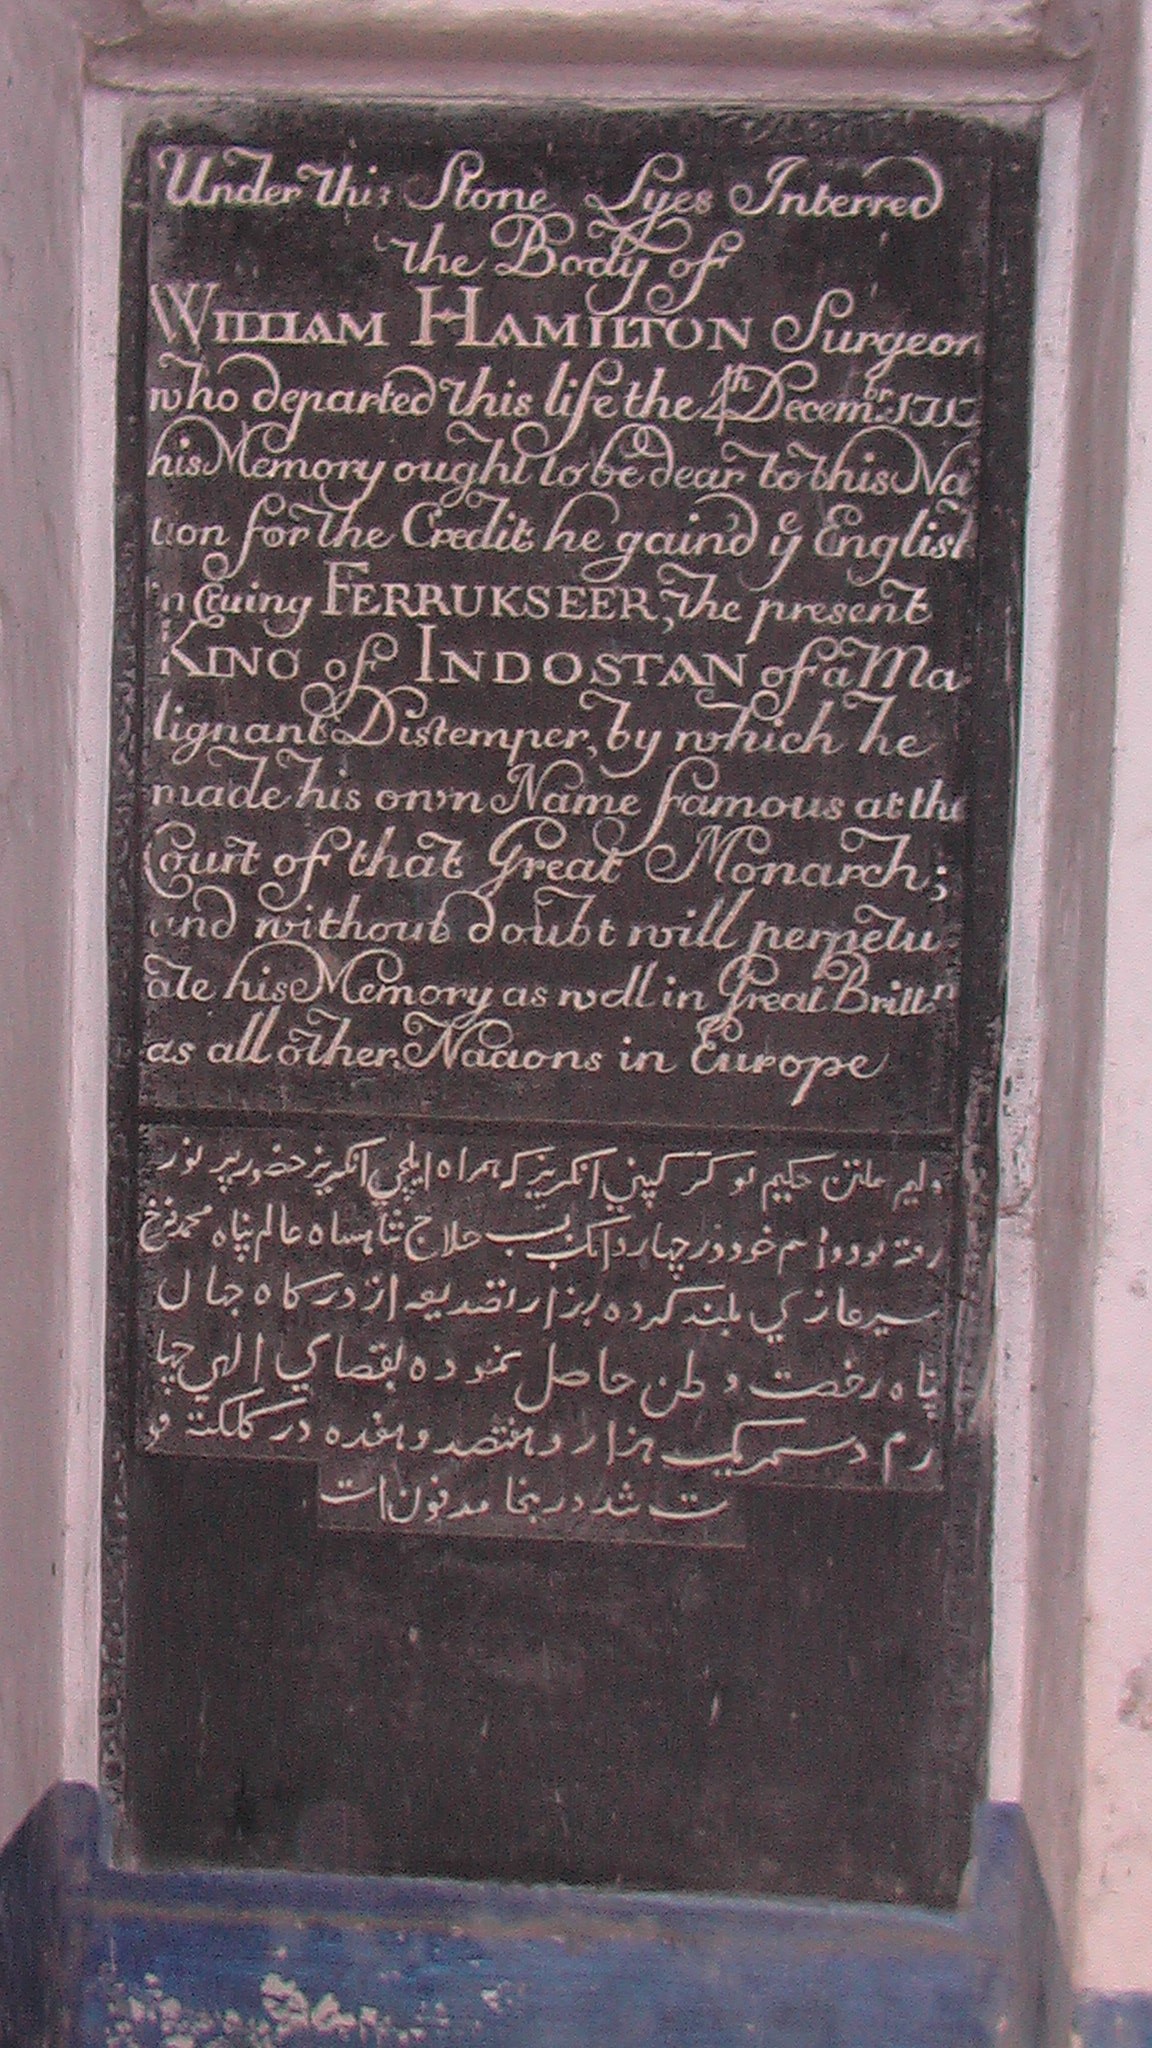 Under this Stone Lyes Interred
the Body of
WILLIAM HAMILTON Surgeon
who departed this life the 4th Decembr. 1717
his Memory ought to be dear to this Na
tion for the Credit he gaind ye English
in Cuing FERRUKSEER, the present
KING of INDOSTAN of a Ma
lignant Distemper, by which he
made his own Name famous at the
Court of that Great Monarch;
and without doubt will perpetu
ate his Memory as well in Great Brittn
as all other Nations in Europe
وليم هملتن حكيم نوكر كپني انكريز كه همراه ايلچي انكريز حضور پر نور
رفته بود و اسم خود در چهار دانك بسبب علاج شاهنشاه عالم پناه محمد فرخ
سير غازي بلند كرده بهزار تصديعه از دركاه جهان
پناه رخصت وطن حاصل نموده بقضاي الهي چها
رم دسمبر يك هزار و هفتصد و هفده در كلكته فو
ت شد در ينجا مدفون است